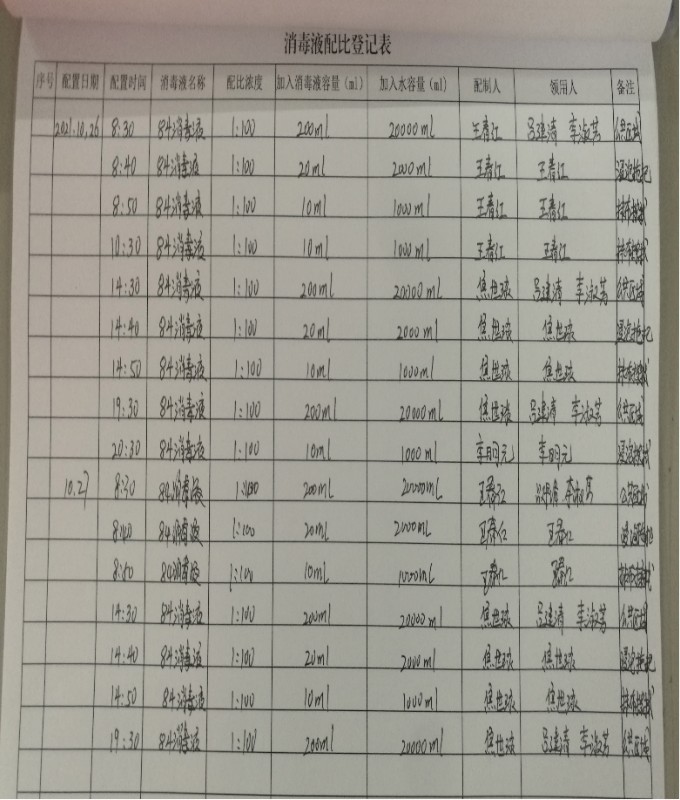 消毒液配比登记表
序号 配置日期 配置时间 消毒液名称 配比浓度 加入消毒液容量（ml） 加入水容量（ml） 配制人 领用人 备注
2021.10.26 8:30 84消毒液 1:100 200ml 20000ml 王春红 吕建清 李淑芳 公共区域
8:40 84消毒液 1:100 20ml 2000ml 王春红 王春红 浸泡拖把
8:50 84消毒液 1:100 10ml 1000ml 王春红 王春红
10:30 84消毒液 1:100 10ml 1000ml 王春红 王春红
14:30 84消毒液 1:100 200ml 20000ml 焦世球 吕建清 李淑芳 公共区域
14:40 84消毒液 1:100 20ml 2000ml 焦世球 焦世球 浸泡拖把
14:50 84消毒液 1:100 10ml 1000ml 焦世球 焦世球
19:30 84消毒液 1:100 200ml 20000ml 焦世球 吕建清 李淑芳 公共区域
20:30 84消毒液 1:100 10ml 1000ml 李明元 李明元
10.27 8:30 84消毒液 1:100 200ml 20000ml 王春红 吕建清 李淑芳 公共区域
8:40 84消毒液 1:100 20ml 2000ml 王春红 王春红
8:50 84消毒液 1:100 10ml 1000ml 王春红 王春红
14:30 84消毒液 1:100 200ml 20000ml 焦世球 吕建清 李淑芳 公共区域
14:40 84消毒液 1:100 20ml 2000ml 焦世球 焦世球 浸泡拖把
14:50 84消毒液 1:100 10ml 1000ml 焦世球 焦世球
19:30 84消毒液 1:100 200ml 20000ml 焦世球 吕建清 李淑芳 公共区域